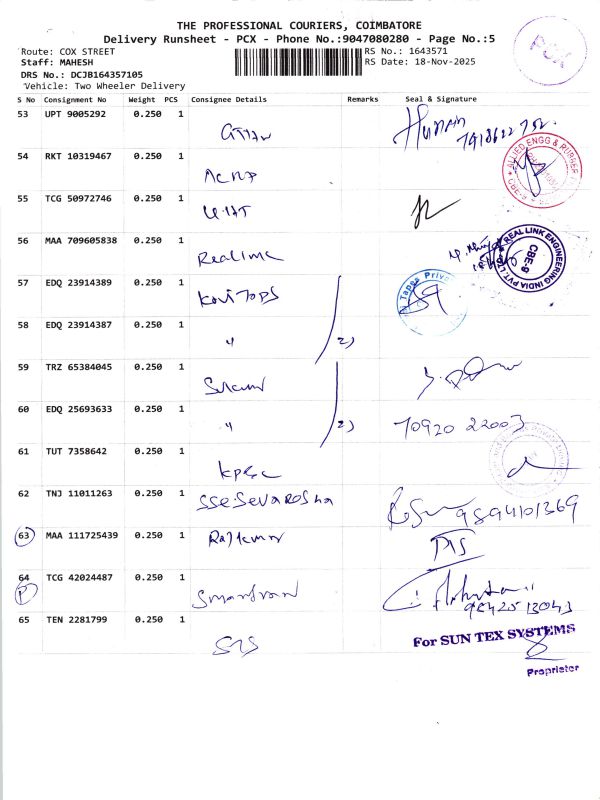 THE PROFESSIONAL COURIERS, COIMBATORE
Delivery Runsheet - PCX - Phone No.:9047080280 - Page No.:5
PCX
Route: COX STREET
RS No.: 1643571
Staff: MAHESH
RS Date: 18-Nov-2025
DRS No.: DCJB164357105
Vehicle: Two Wheeler Delivery
S No Consignment No Weight PCS Consignee Details Remarks Seal & Signature
53 UPT 9005292 0.250 1
54 RKT 10319467 0.250 1
ALLIED ENGG & RUBBER
55 TCG 50972746 0.250 1
56 MAA 709605838 0.250 1 Realink
REAL LINK ENGINEERING INDIA PVT. LTD CBE-9
57 EDQ 23914389 0.250 1 Kovi Tops
Tapes Priv
58 EDQ 23914387 0.250 1 " 2)
59 TRZ 65384045 0.250 1
60 EDQ 25693633 0.250 1 " 2) 70920 22003
61 TUT 7358642 0.250 1
62 TNJ 11011263 0.250 1 9894101369
63 MAA 111725439 0.250 1 Rajkumar
64 TCG 42024487 0.250 1
P
65 TEN 2281799 0.250 1 STS
For SUN TEX SYSTEMS
Proprietor